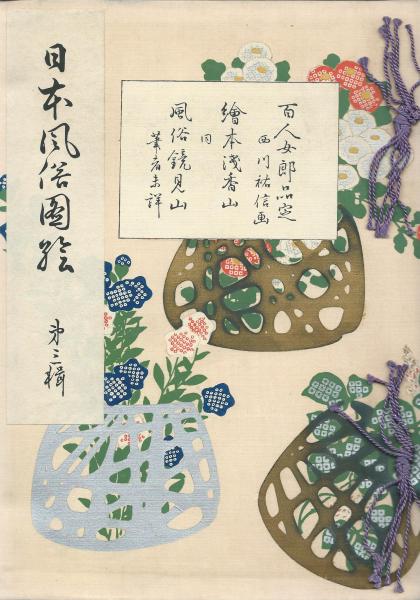 日本風俗圖繪
第三輯
百人女郎品定
西川祐信画
繪本浅香山
同
風俗鏡見山
筆者未詳